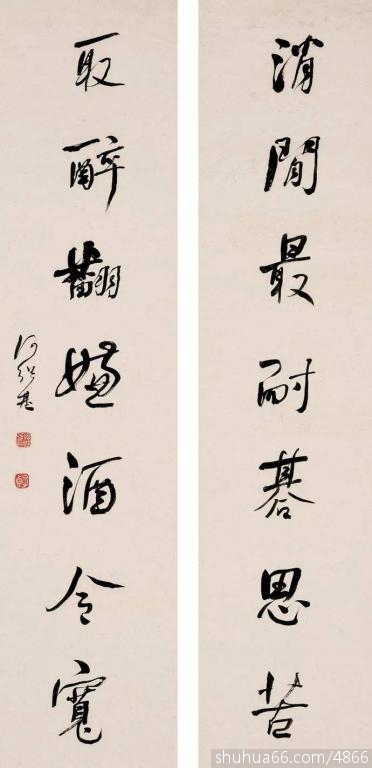 消閒最耐碁思苦
取醉翻嫌酒令寬
何紹基
shuhua66.com/4866